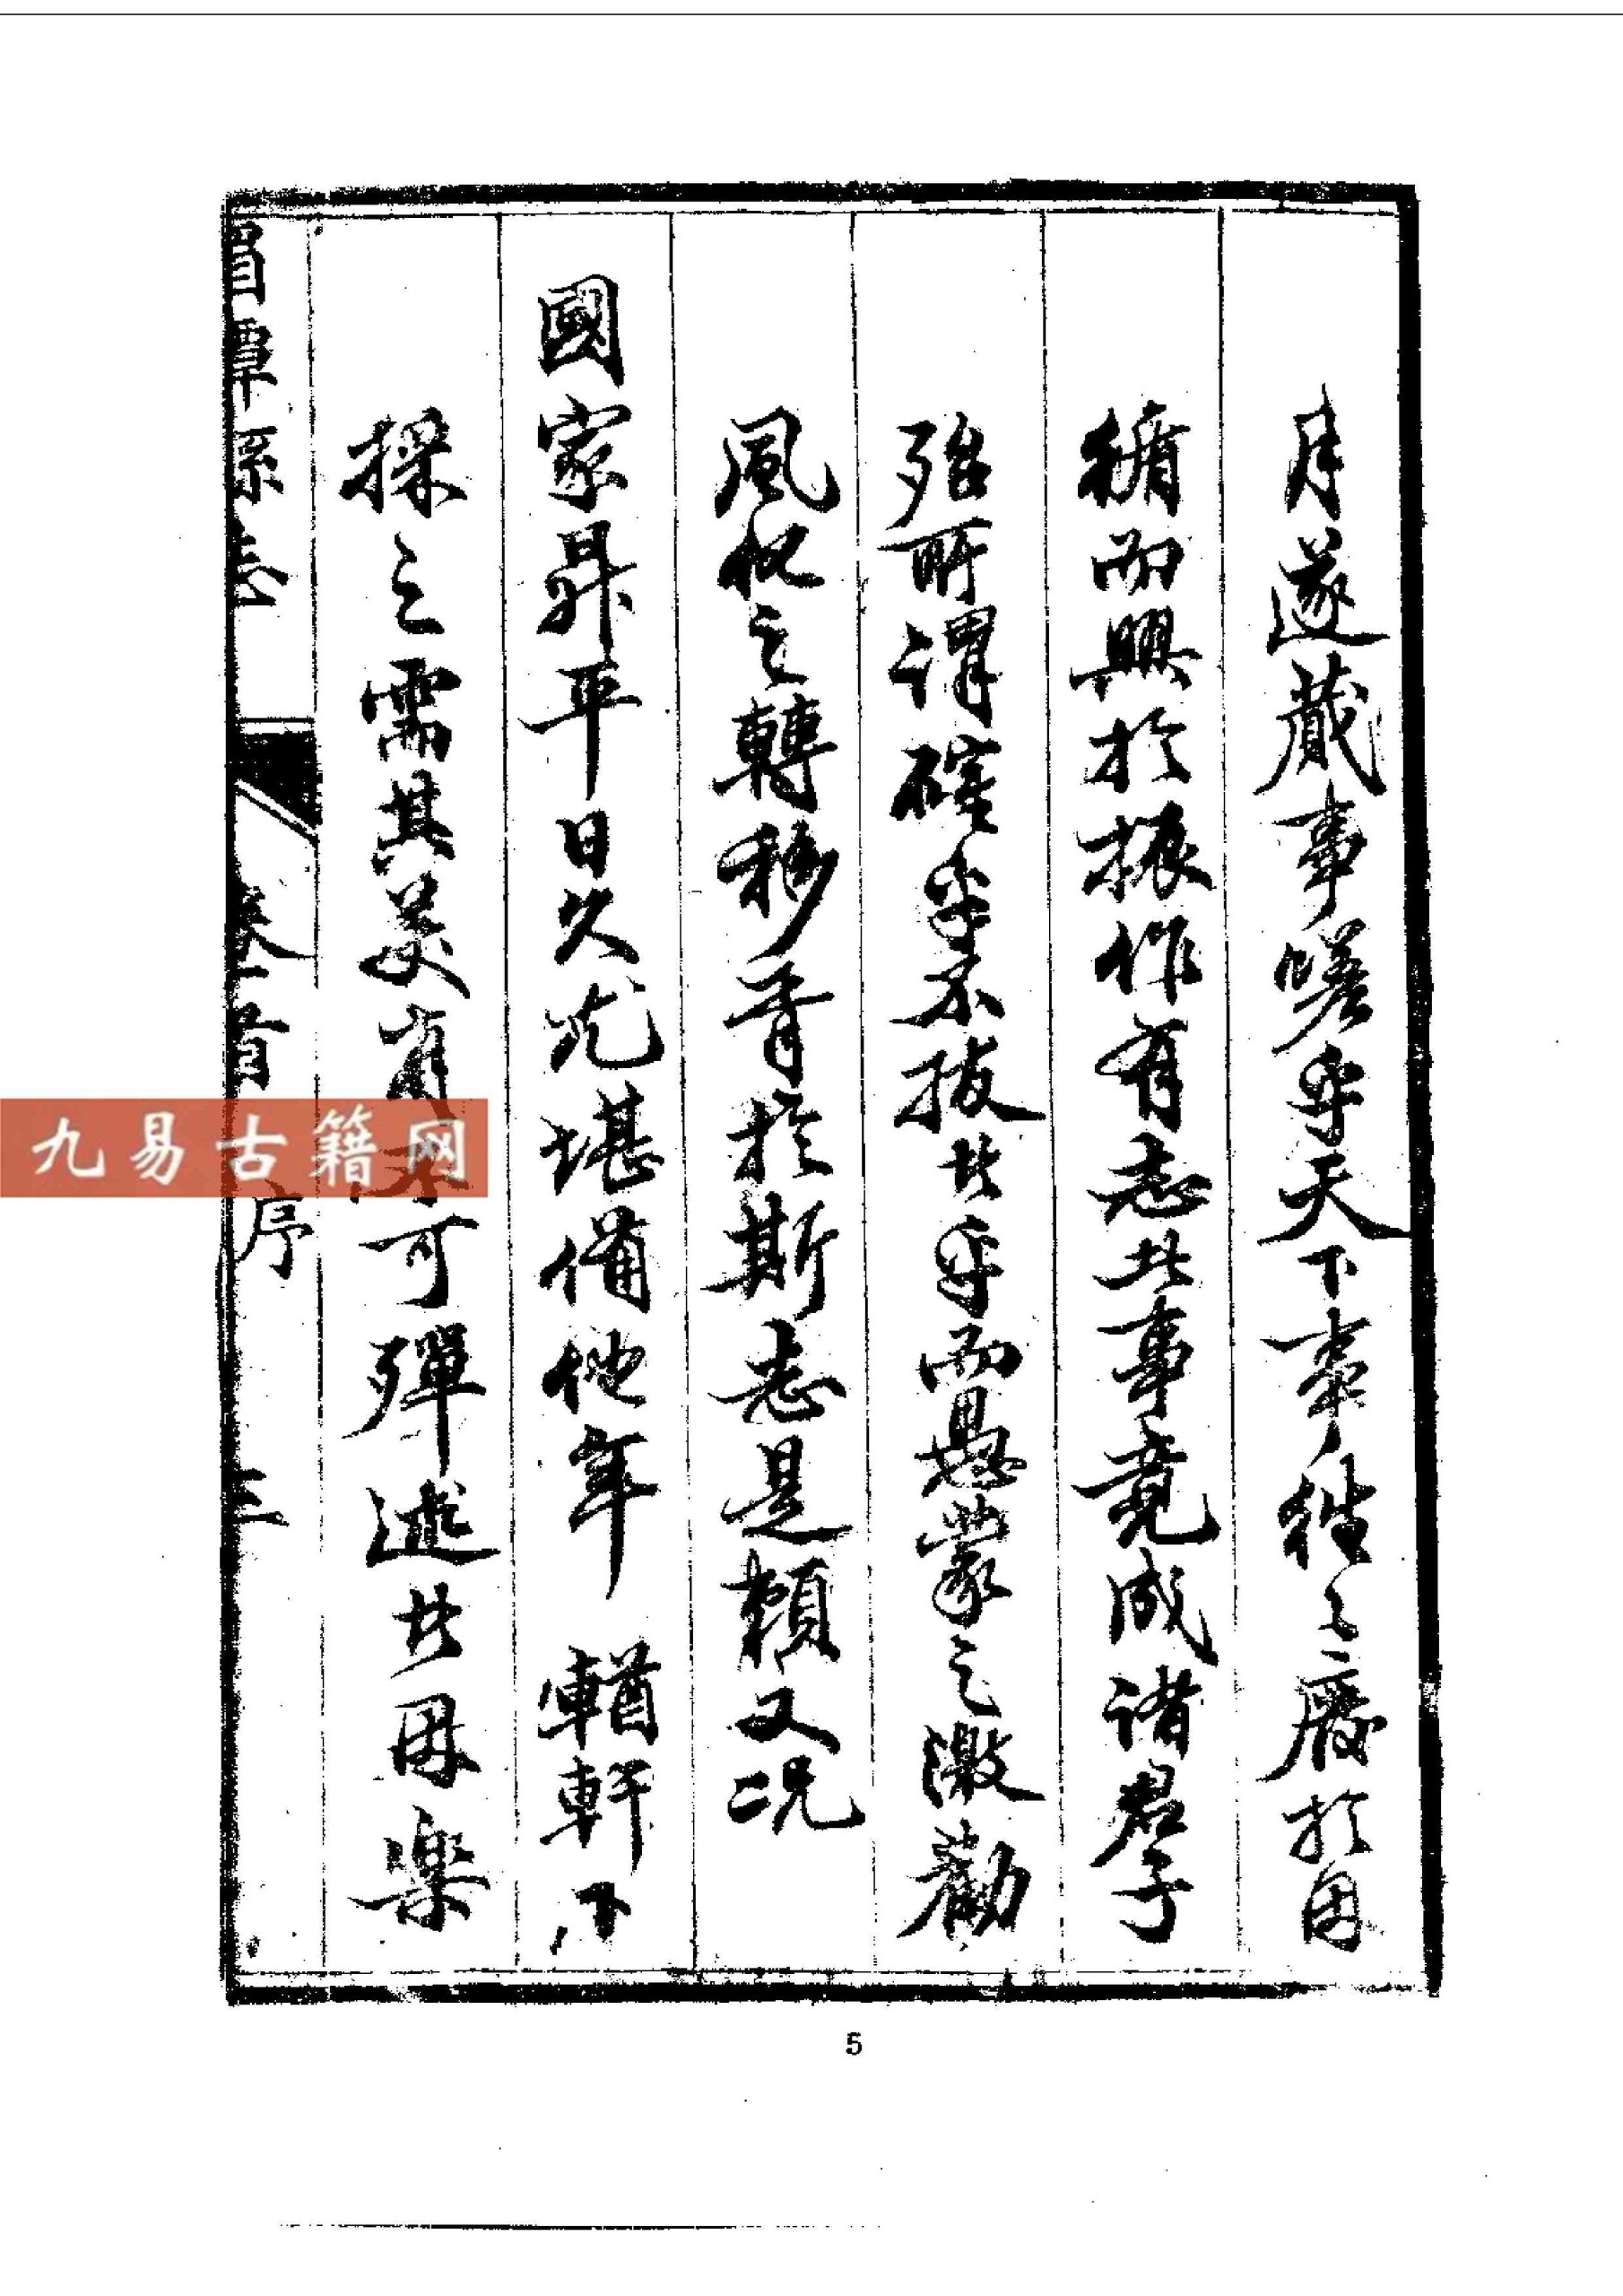 月遂蕆事嗟乎天下事往〻廢於因
循而興於振作有志此事竟成諸君子
殆所謂確乎不拔者乎而愚蒙之激勸
風化之轉移胥於斯志是賴又况
國家昇平日久尤堪備他年輶軒下
採之需其美有不可殫述者因樂
湄潭縣志 卷首 序 三
九易古籍网
5